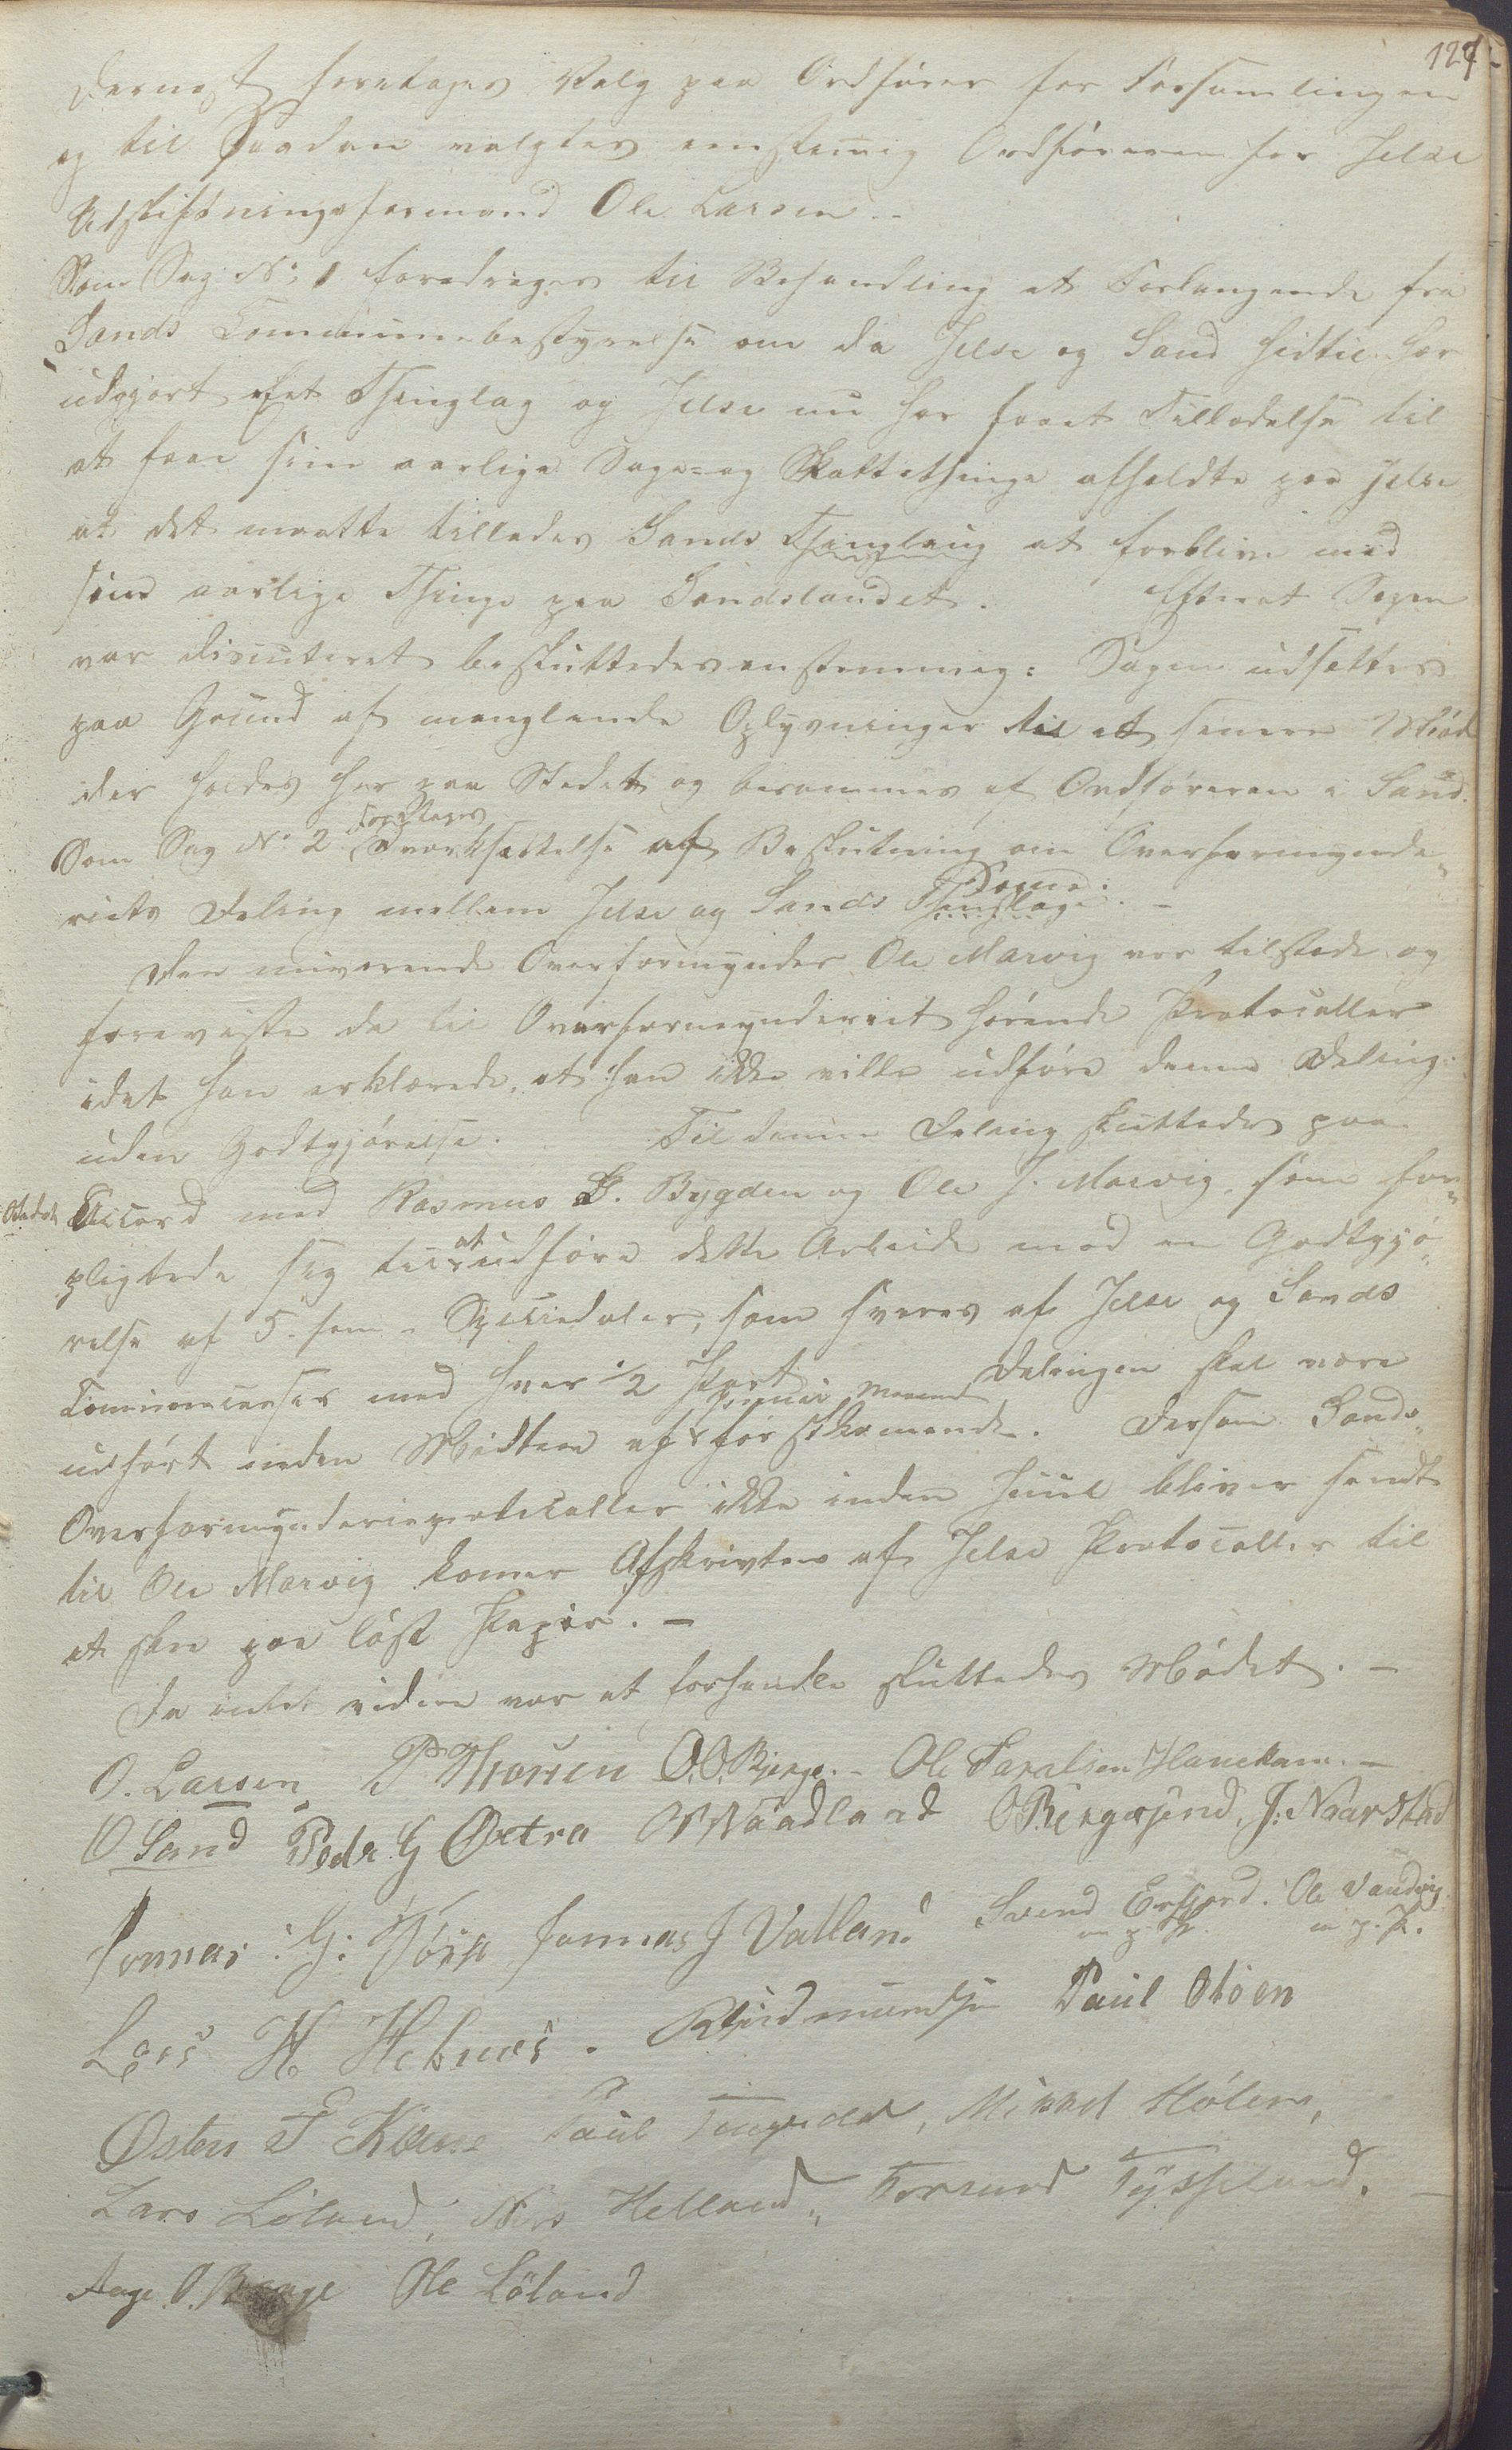 127
Dernest foretoges Valg paa Ordfører for Forsamlingen
og til Saadan valgtes eenstemig Ordføreren for Jelse
Udskiftningsformand Ole Larsen.-
Som Sag No 1 foredroges til Behandling et Forlangende fra
Sands Communebestyrelse om da Jelse og Sand hidtil har
udgjort et Thinglag og Jelse nu har faaet Tilladelse til
at faae sine aarlige Sage- og Skattethinge afholdte paa Jelse
at det maatte tillades Sands Thinglaug at forblive med
sine aarlige Thinge paa Sandslandet. Efterat Sagen
var discuteret besluttedes enstemmig: Sagen udsættes
paa Grund af manglende Oplysninger til et senere Mød
der holdes her paa Stedet og berammes af Ordføreren i Sand.
Som Sag No 2 foretoges Iverksættelse af Beslutning om Overformynde-
riets Deling mellem Jelse og Sands Sogne. Thinglage. -
Den nuværende Overformynder Ole Marvig var tilstede og
foreviste de til Overformynderiet hørende Protocoller
idet han erklærede, at han ikke ville udføre denne Deling
uden Godtgjørelse. Til denne Deling sluttedes paa
Stedet Accord med Rasmus B. Bygden og Ole J. Marvig, som for-
pligtede sig til at udføre dette Arbeide mod en Godtgjø-
relse af 5 - fem - Speciedaler, som svares af Jelse og Sands
Communecasser med hver 1/2 Part. Delingen skal være
udført inden Midten af Januar Maaned førstkommende. Dersom Sands
Overformynderieprotocoller ikke inden Juul bliver sendt
til Ole Marvig kommer Afskrivten af Jelse Protocoller til
at skee paa løst Papir. -
Da intet videre var at forhandle sluttedes Mødet. -
O. Larsen P Thorsen O.O. Bjerge. - Ole Taralsen Hauekam. -
O Sand Peder G Øxtra Waadland O Bergesend, J: Naarstad
Jonnas: G: Jonnas J Valland Svend Erfjord. Ole Vandvig
m. p. P. m. p. P.
Lars H Hebnes. Paul Støen
Østen T Paul Tengesdal, Mikkel Hølen,
Lars Löland, Nils Helland, Tormod Tysseland.
Aage O. Berge Ole Löland